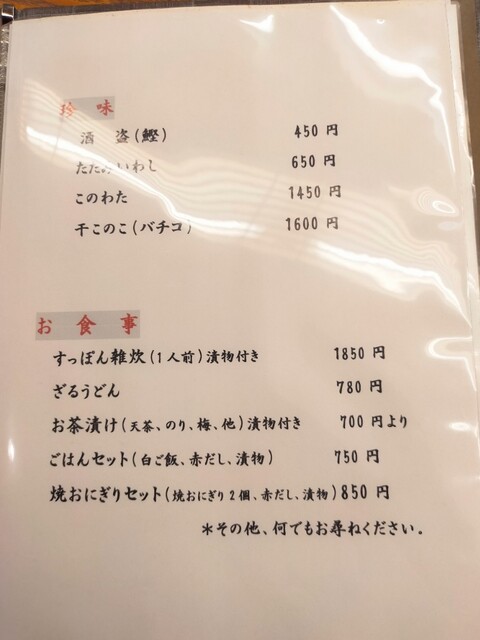 珍味
酒盗(鰹) 450円
たたみいわし 650円
このわた 1450円
干このこ(バチコ) 1600円
お食事
すっぽん雑炊(1人前)漬物付き 1850円
ざるうどん 780円
お茶漬け(天茶、のり、梅、他)漬物付き 700円より
ごはんセット(白ご飯、赤だし、漬物) 750円
焼おにぎりセット(焼おにぎり2個、赤だし、漬物) 850円
*その他、何でもお尋ねください。